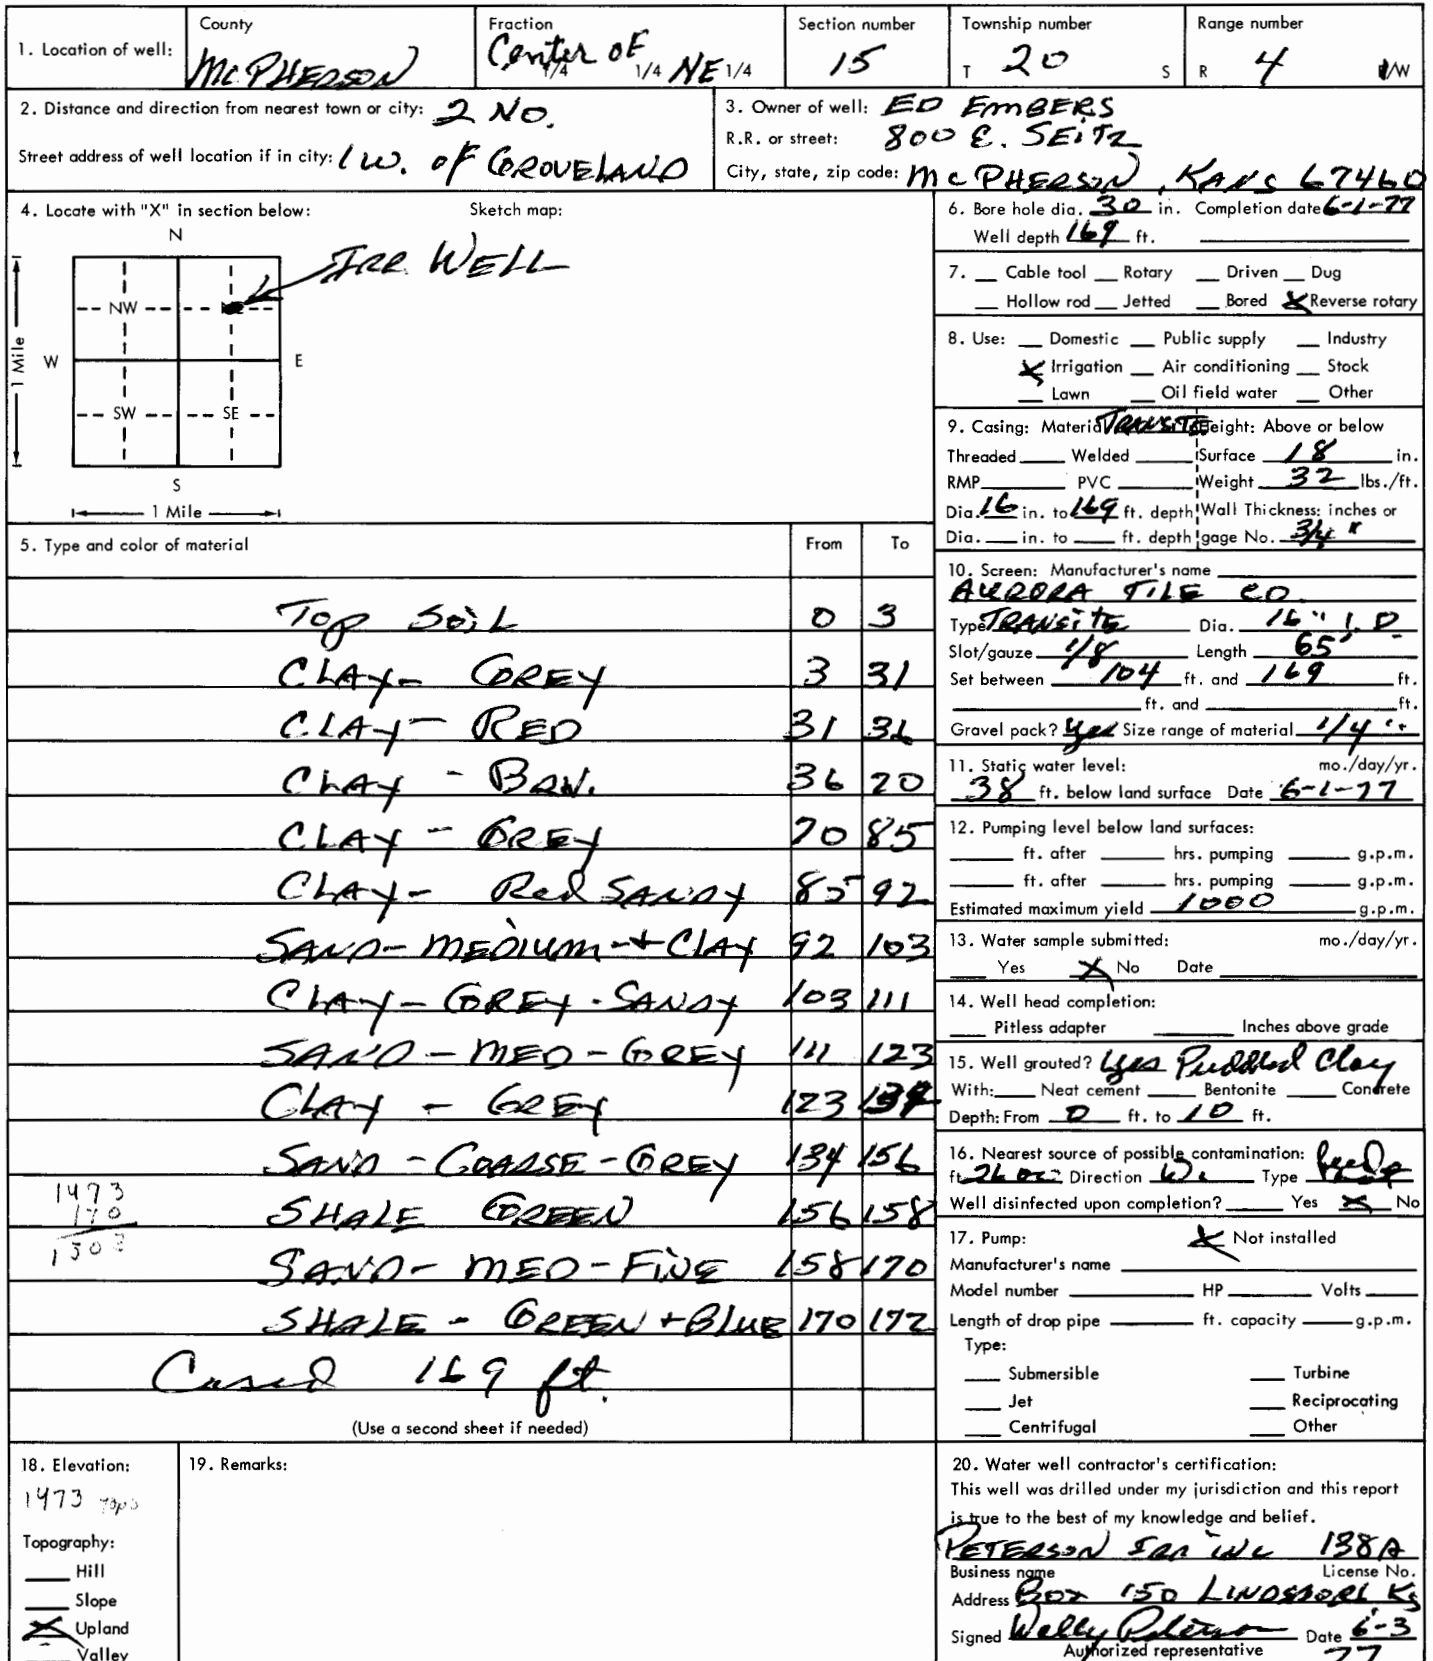 1. Location of well:
County
McPHERSON
Fraction
Center OF 1/4 1/4 NE 1/4
Section number
15
Township number
T 20 S
Range number
R 4 /W
2. Distance and direction from nearest town or city: 2 NO.
Street address of well location if in city: 1 W. OF GROVELAND
3. Owner of well: ED EMBERS
R.R. or street: 800 E. SEITZ
City, state, zip code: McPHERSON, KANS 67460
4. Locate with "X" in section below:
Sketch map:
N
IRR WELL
NW
W E
SW SE
S
1 Mile
1 Mile
5. Type and color of material From To
TOP SOIL 0 3
CLAY - GREY 3 31
CLAY - RED 31 36
CLAY - BRN. 36 70
CLAY - GREY 70 85
CLAY - Red SANDY 85 92
SAND - MEDIUM + CLAY 92 103
CLAY - GREY - SANDY 103 111
SAND - MED - GREY 111 123
CLAY - GREY 123 134
SAND - COARSE - GREY 134 156
SHALE GREEN 156 158
SAND - MED - FINE 158 170
SHALE - GREEN + BLUE 170 172
Cased 169 ft.
1473
170
1303
(Use a second sheet if needed)
6. Bore hole dia. 30 in. Completion date 6-1-77
Well depth 169 ft.
7. Cable tool Rotary Driven Dug
Hollow rod Jetted Bored X Reverse rotary
8. Use: Domestic Public supply Industry
X Irrigation Air conditioning Stock
Lawn Oil field water Other
9. Casing: Material TRANSITE Height: Above or below
Threaded Welded Surface 18 in.
RMP PVC Weight 32 lbs./ft.
Dia. 16 in. to 169 ft. depth Wall Thickness: inches or
Dia. in. to ft. depth gage No. 3/4 "
10. Screen: Manufacturer's name
AURORA TILE CO.
Type TRANSITE Dia. 16" I.D.
Slot/gauze 1/8 Length 65'
Set between 104 ft. and 169 ft.
ft. and ft.
Gravel pack? yes Size range of material 1/4"
11. Static water level: mo./day/yr.
38 ft. below land surface Date 6-1-77
12. Pumping level below land surfaces:
ft. after hrs. pumping g.p.m.
ft. after hrs. pumping g.p.m.
Estimated maximum yield 1000 g.p.m.
13. Water sample submitted: mo./day/yr.
Yes X No Date
14. Well head completion:
Pitless adapter Inches above grade
15. Well grouted? yes Puddled Clay
With: Neat cement Bentonite Concrete
Depth: From 0 ft. to 10 ft.
16. Nearest source of possible contamination:
ft. Direction W. Type
Well disinfected upon completion? Yes X No
17. Pump: X Not installed
Manufacturer's name
Model number HP Volts
Length of drop pipe ft. capacity g.p.m.
Type:
Submersible Turbine
Jet Reciprocating
Centrifugal Other
18. Elevation:
1473 Topo
Topography:
Hill
Slope
X Upland
Valley
19. Remarks:
20. Water well contractor's certification:
This well was drilled under my jurisdiction and this report
is true to the best of my knowledge and belief.
PETERSON IRR INC 138A
Business name License No.
Address BOX 150 LINDSBORG KS
Signed Wally Peterson Date 6-3
Authorized representative 77